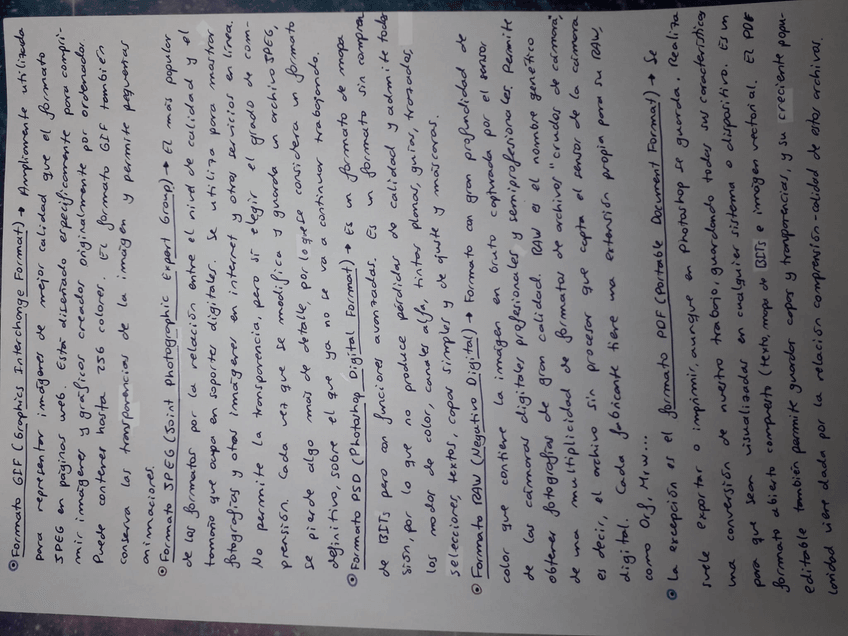 ⊙ Formato GIF (Graphics Interchange Format) → Ampliamente utilizado
para representar imágenes de mejor calidad que el formato
JPEG en páginas web. Está diseñado específicamente para compri-
mir imágenes y gráficos creados originalmente por ordenador.
Puede contener hasta 256 colores. El formato GIF también
conserva las transparencias de la imágen y permite pequeñas
animaciones.
⊙ Formato JPEG (Joint photographic Expert Group) → El más popular
de los formatos por la relación entre el nivel de calidad y el
tamaño que ocupa en soportes digitales. Se utiliza para mostrar
fotografías y otras imágenes en internet y otros servicios en línea.
No permite la transparencia, pero sí elegir el grado de com-
prensión. Cada vez que se modifica y guarda un archivo JPEG,
se pierde algo más de detalle, por lo que se considera un formato
definitivo, sobre el que ya no se va a continuar trabajando.
⊙ Formato PSD (Photoshop Digital Format) → Es un formato de mapa
de BITs pero con funciones avanzadas. Es un formato sin compren
sión, por lo que no produce pérdidas de calidad y admite todos
los modos de color, canales alfa, tintas planas, guías, trazados,
selecciones, textos, capas simples y de ajuste y máscaras.
⊙ Formato RAW (Negativo Digital) → Formato con gran profundidad de
color que contiene la imágen en bruto capturada por el sensor
de las cámaras digitales profesionales y semiprofesionales. Permite
obtener fotografías de gran calidad. RAW es el nombre genético
de una multiplicidad de formatos de archivos "crudos de cámara",
es decir, el archivo sin procesar que capta el sensor de la cámara
digital. Cada fabricante tiene una extensión propia para su RAW,
como Orf, Mrw...
⊙ La excepción es el formato PDF (Portable Document Format) → Se
suele exportar o imprimir, aunque en Photoshop se guarda. Realiza
una conversión de nuestro trabajo, guardando todas sus características
para que sean visualizadas en cualquier sistema o dispositivo. Es un
formato abierto compuesto (texto, mapa de BITs e imágen vectorial. El PDF
editable también permite guardar capas y transparencias, y su creciente popu-
laridad viene dada por la relación compresión-calidad de estos archivos.